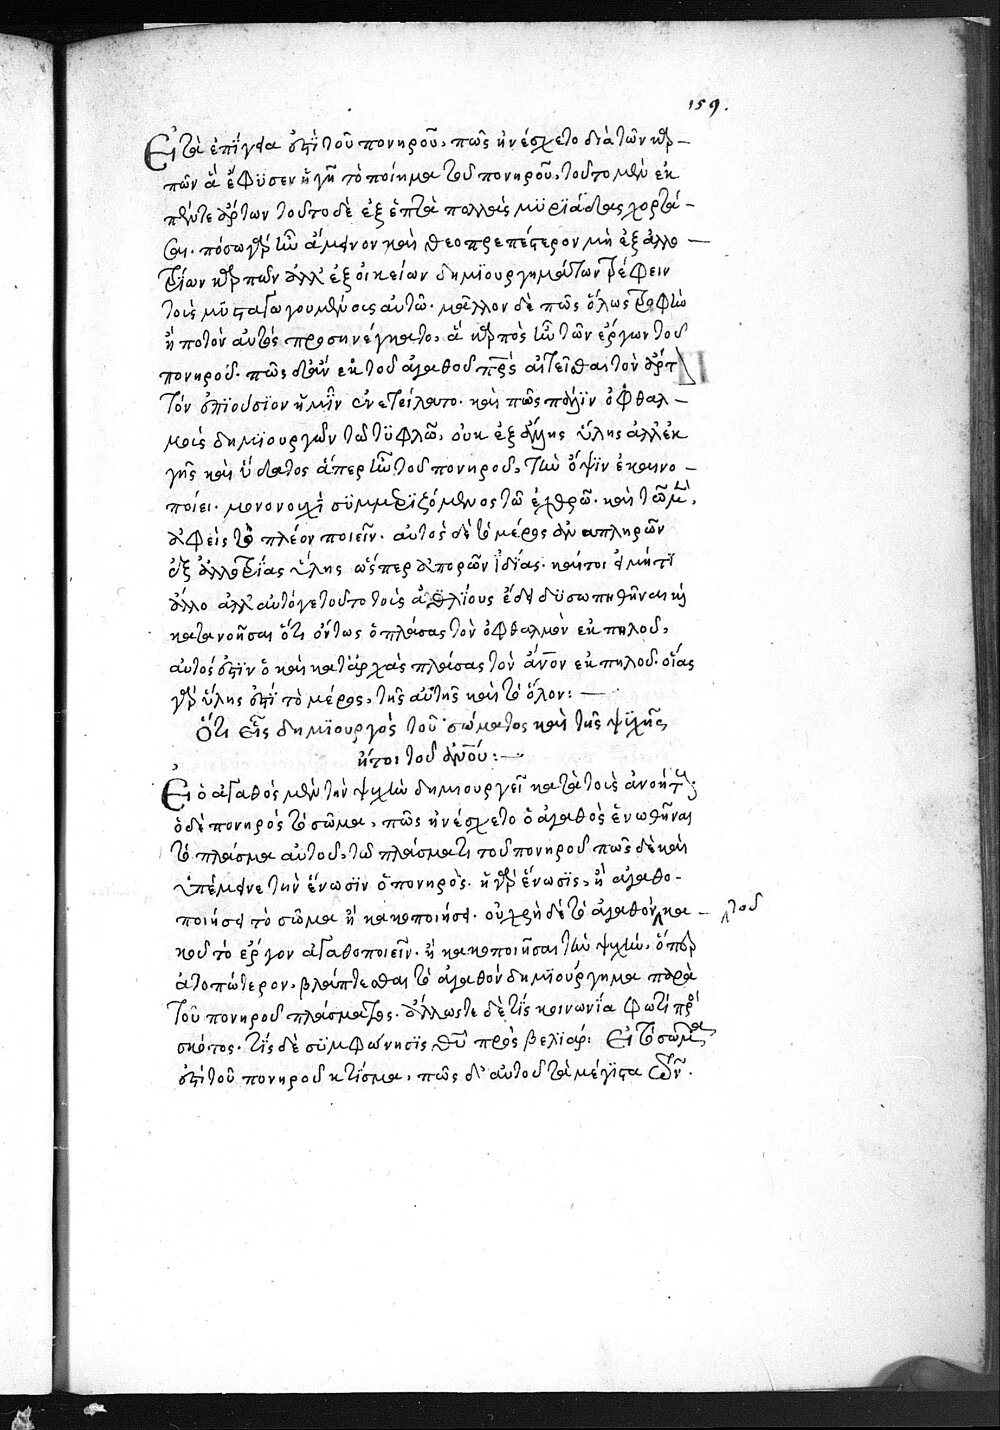 159.
Εἰ τὰ ἐπίγεια ἐστὶ τοῦ πονηροῦ, πῶς ἠνέσχετο διὰ τῶν καρ-
πῶν ἃ ἔφϋσεν ἡ γῆ τὸ ποίημα τοῦ πονηροῦ, τοῦτο μὲν ἐκ
πέντε ἄρτων τοῦτο δὲ ἐξ ἑπτὰ πολλὰς μϋρϊάδας χορτά-
σαι. πόσω γὰρ ἦν ἄμεινον καὶ θεοπρεπέστερον μὴ ἐξ ἀλλο-
τρίων καρπῶν ἀλλ' ἐξ οἰκείων δημϊουργημάτων τρέφειν
τοὺς μϋσταγωγουμένους αὐτῶ. μᾶλλον δὲ πῶς ὅλως τροφὴν
ἢ ποτὸν αὐτὸς προσηνέγκατο, ἃ καρπὸς ἦν τῶν ἔργων τοῦ
πονηροῦ. πῶς δ' ἂν ἐκ τοῦ ἀγαθοῦ πρς αἰτεῖσθαι τὸν ἄρτ
τὸν ἐπϊούσϊον ἡμῖν ἐνετείλατο. καὶ πῶς ποιεῖν ὀφθαλ-
μοὺς δημϊουργῶν τῶ τϋφλῶ, οὐκ ἐξ ἄλλης ὕλης ἀλλ' ἐκ
γῆς καὶ ὕδατος ἅπερ ἦν τοῦ πονηροῦ, τὴν ὄψϊν ἐκαινο-
ποίει. μονονουχὶ σϋμμερϊζόμενος τῶ ἐχθρῶ. καὶ τῶ μὲν,
ἀφεὶς τὸ πλέον ποιεῖν. αὐτὸς δὲ τὸ μέρος ἀναπληρῶν
ἐξ ἀλλοτρίας ὕλης ὥσπερ ἀπορῶν ἰδίας. καίτοι εἰ μή τϊ
ἄλλο ἀλλ' αὐτό γε τοῦτο τοὺς ἀθλίους ἔδει δϋσωπηθῆναι καὶ
κατανοῆσαι ὅτι ὄντως ὁ πλάσας τὸν ὀφθαλμὸν ἐκ πηλοῦ,
αὐτός ἐστϊν ὁ καὶ κατ' ἀρχὰς πλάσας τὸν ἄνον ἐκ πηλοῦ. οἵας
γὰρ ὕλης ἐστὶ τὸ μέρος, τῆς αὐτῆς καὶ τὸ ὅλον: —
Ὅτι εἷς δημϊουργὸς τοῦ σώματος καὶ τῆς ψϋχῆς
ἤτοι τοῦ ἀνου: —
Εἰ ὁ ἀγαθὸς μὲν τὴν ψυχὴν δημιουργεῖ κατὰ τοὺς ἀνοήτους
ὁ δὲ πονηρὸς τὸ σῶμα, πῶς ἠνέσχετο ὁ ἀγαθὸς ἑνωθῆναι
τὸ πλάσμα αὐτοῦ, τῶ πλάσματι τοῦ πονηροῦ πῶς δὲ καὶ
ὑπέμεινε τὴν ἕνωσϊν ὁ πονηρός. ἡ γὰρ ἕνωσϊς, ἢ ἀγαθο-
ποιήσει τὸ σῶμα ἢ κακοποιήσει. οὐ χρὴ δὲ τὸ ἀγαθὸν κα- τοῦ
κοῦ τὸ ἔργον ἀγαθοποιεῖν. ἢ κακοποιῆσαι τὴν ψυχὴν, ὅπερ
ἀτοπώτερον, βλάπτεσθαι τὸ ἀγαθὸν δημϊούργημα παρὰ
τοῦ πονηροῦ πλάσματος. ἄλλως τε δὲ τίς κοινωνία φωτὶ πρὸς
σκότος. τίς δὲ σϋμφώνησϊς θῦ πρὸς βελϊάρ: Εἰ τὸ σῶμα
ἐστὶ τοῦ πονηροῦ κτίσμα, πῶς δι' αὐτοῦ τὰ μέγιστα